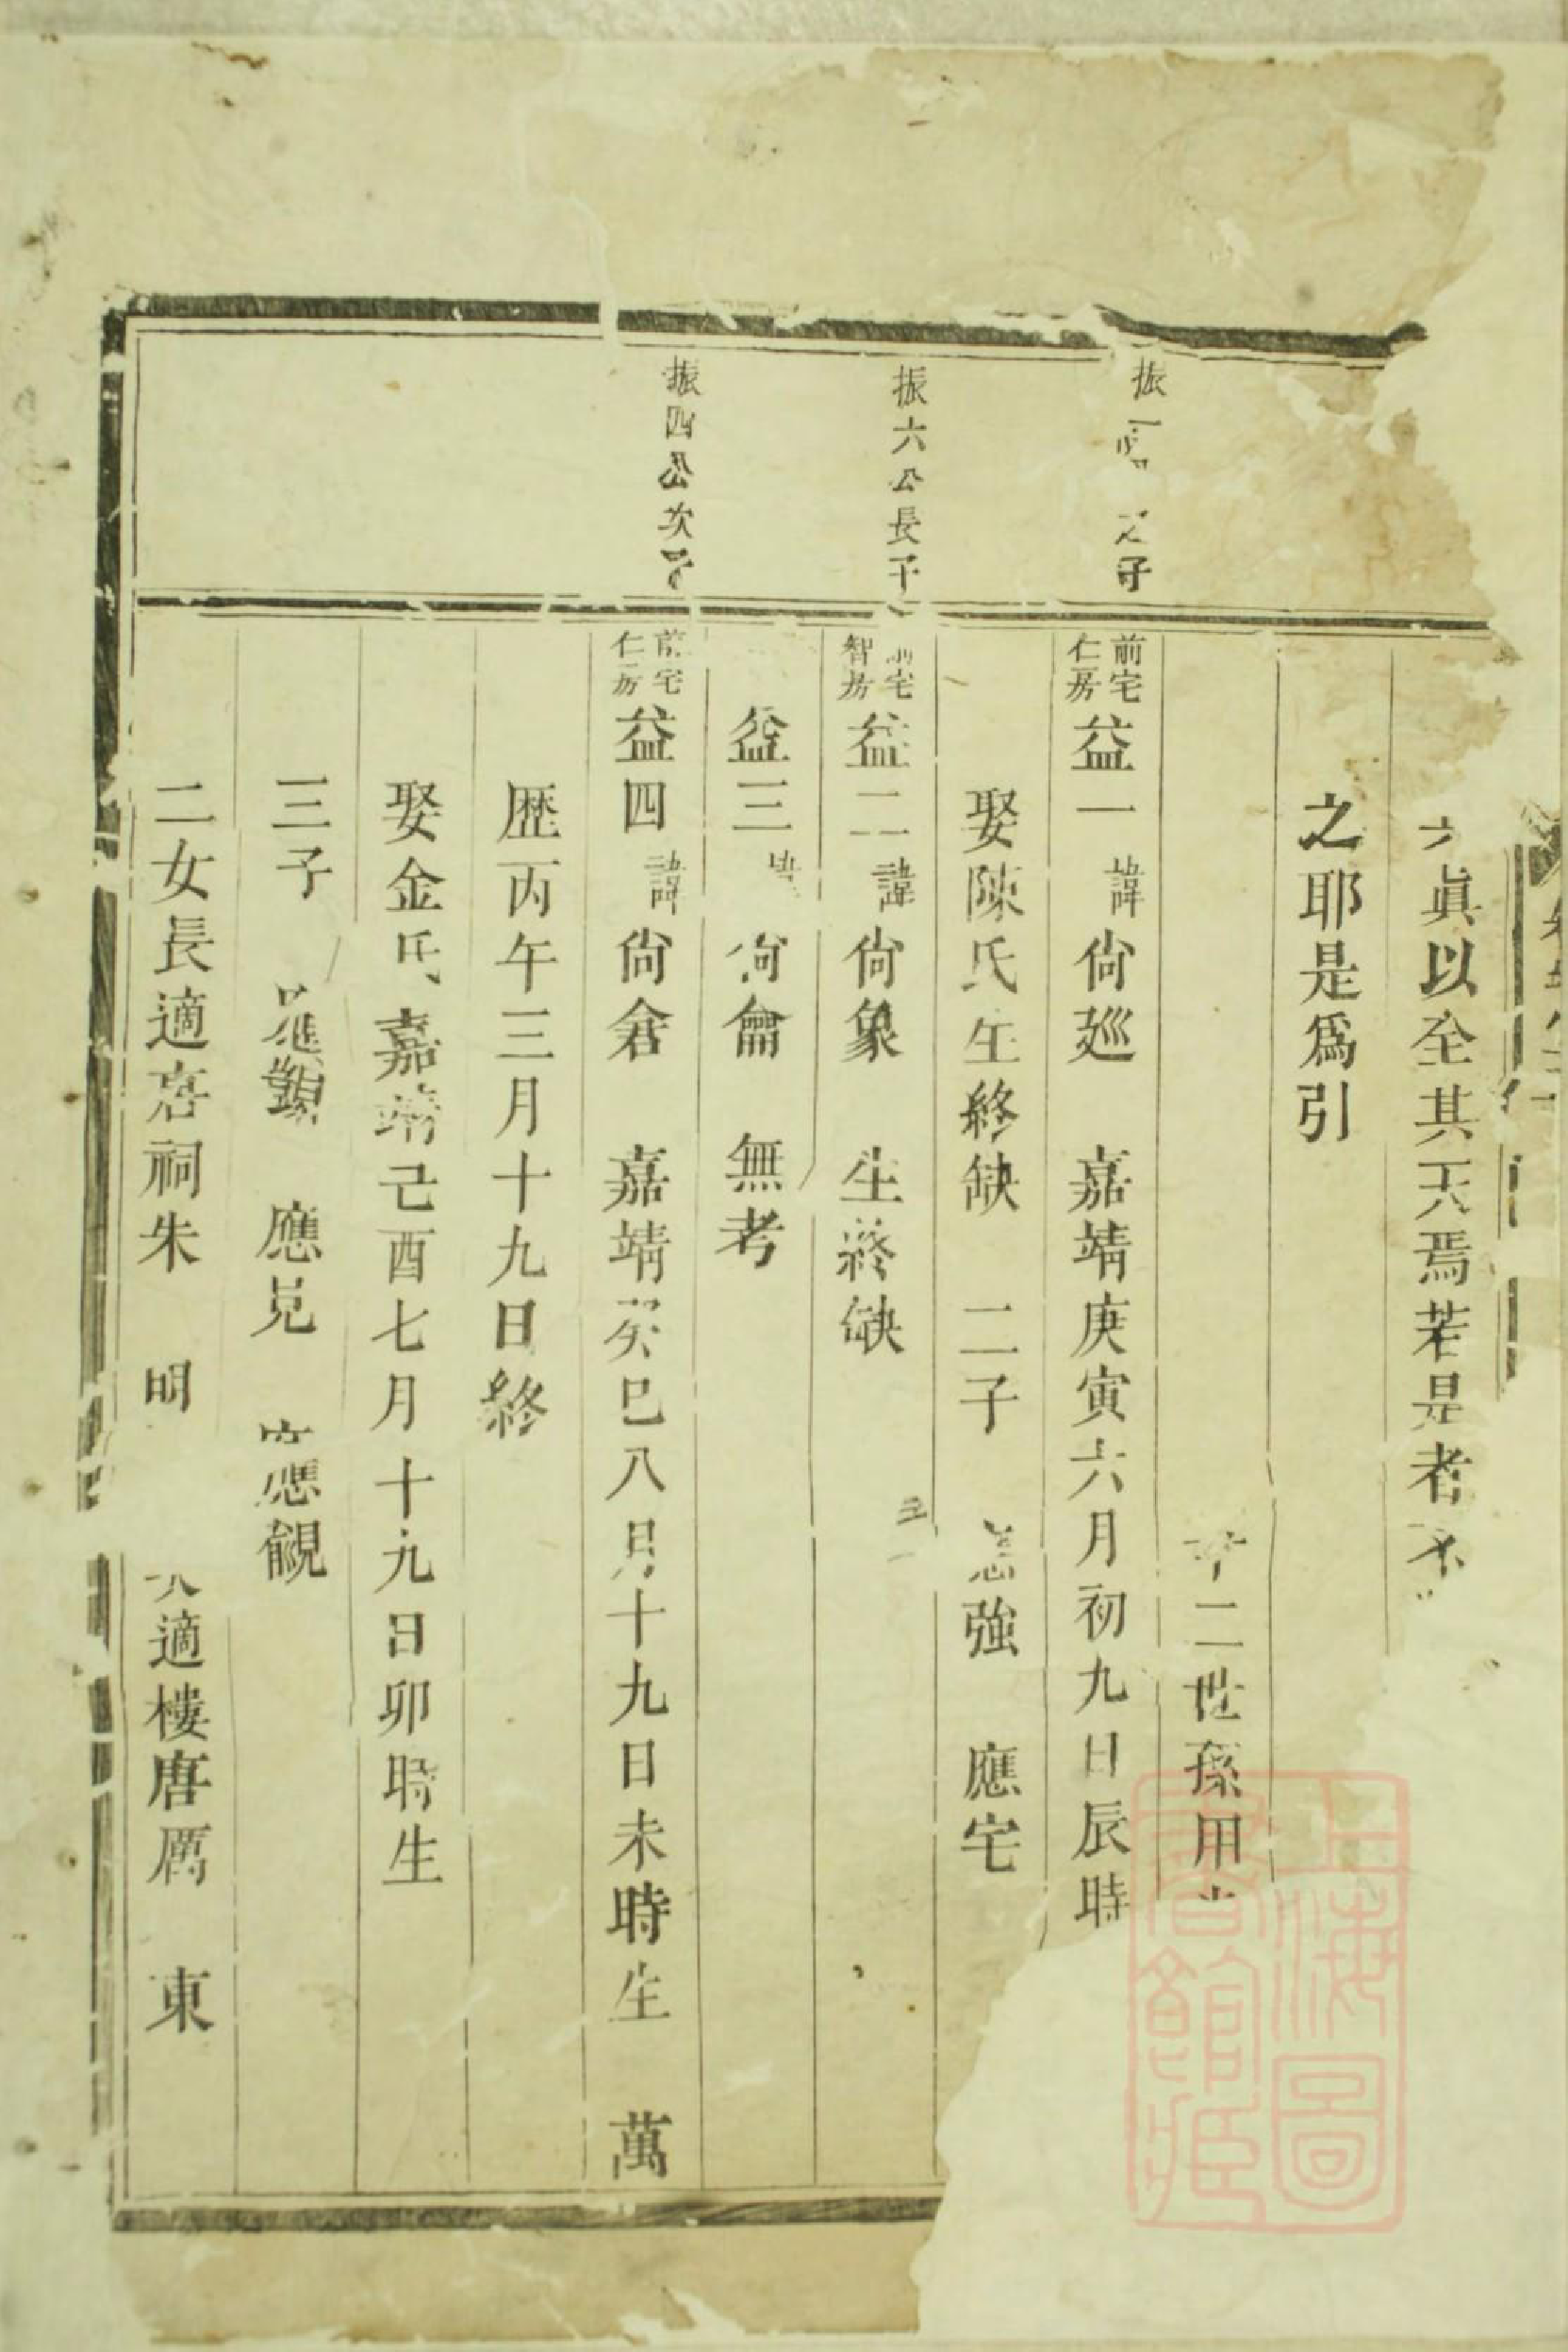 眞以全其天焉若是者不
之耶是爲引
十二世孫用
振四 之子
前宅仁房 益一 諱尙廵 嘉靖庚寅六月初九日辰時
娶陳氏生終缺 二子 應強 應宅
振六公長子
前宅智房 益二 諱尙象 生終缺
益三 諱尙侖 無考
振四公次子
前宅仁房 益四 諱尙倉 嘉靖癸巳八月十九日未時生 萬
歷丙午三月十九日終
娶金氏嘉靖己酉七月十九日卯時生
三子 應顯 應見 應觀
二女長適唐祠朱 明 次適樓唐厲 東
上海圖書館藏